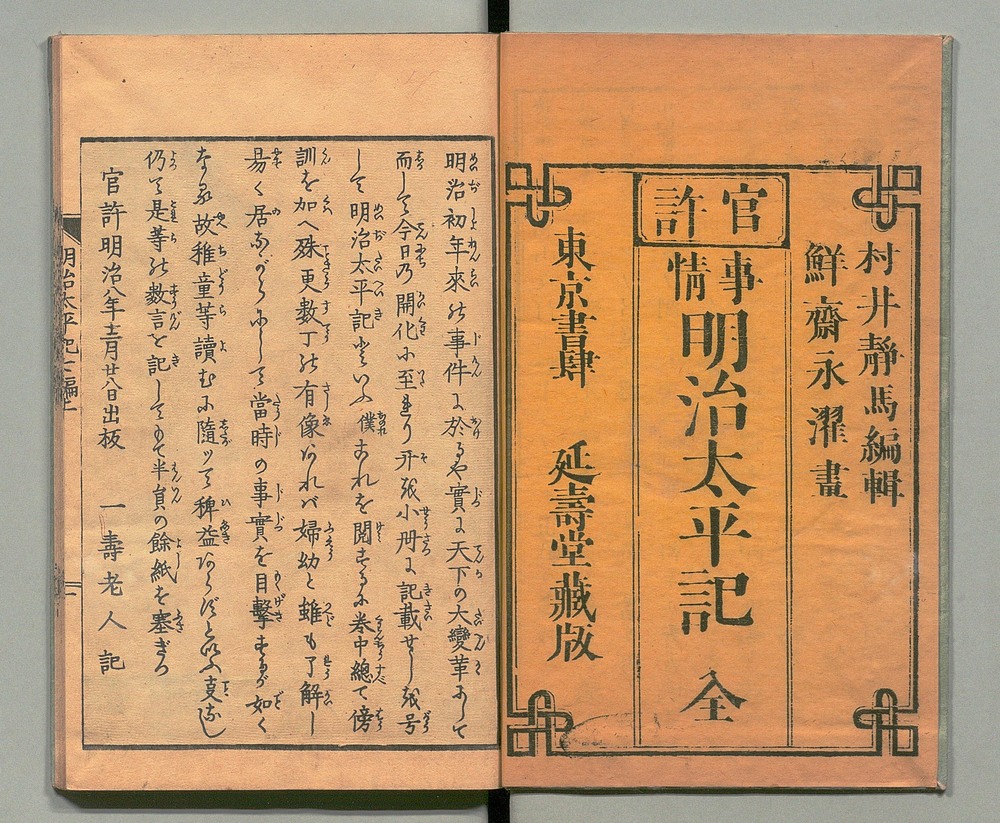 村井靜馬編輯
鮮齋永濯畫
官許
事情
明治太平記 全
東京書肆 延壽堂藏版
明治初年來の事件に於るや實に天下の大變革にして
而して今日の開化に至れり并を小册に記載せしを号
して明治太平記といふ僕これを閲するに巻中總て傍
訓を加へ殊更數丁の有像あれバ婦幼と雖も了解し
易く居ながらにして當時の事實を目擊するが如く
なり故稚童等讀むに隨ッて稗益あらずといふ支なし
仍て是等の數言を記しもて半員の餘紙を塞ぎつ
官許明治八年十二月廿八日出板 一壽老人記
明治太平記二編